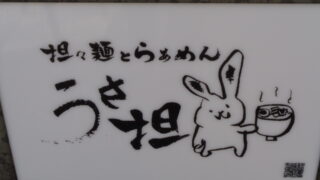 担々麺とらぁめん
うさ担